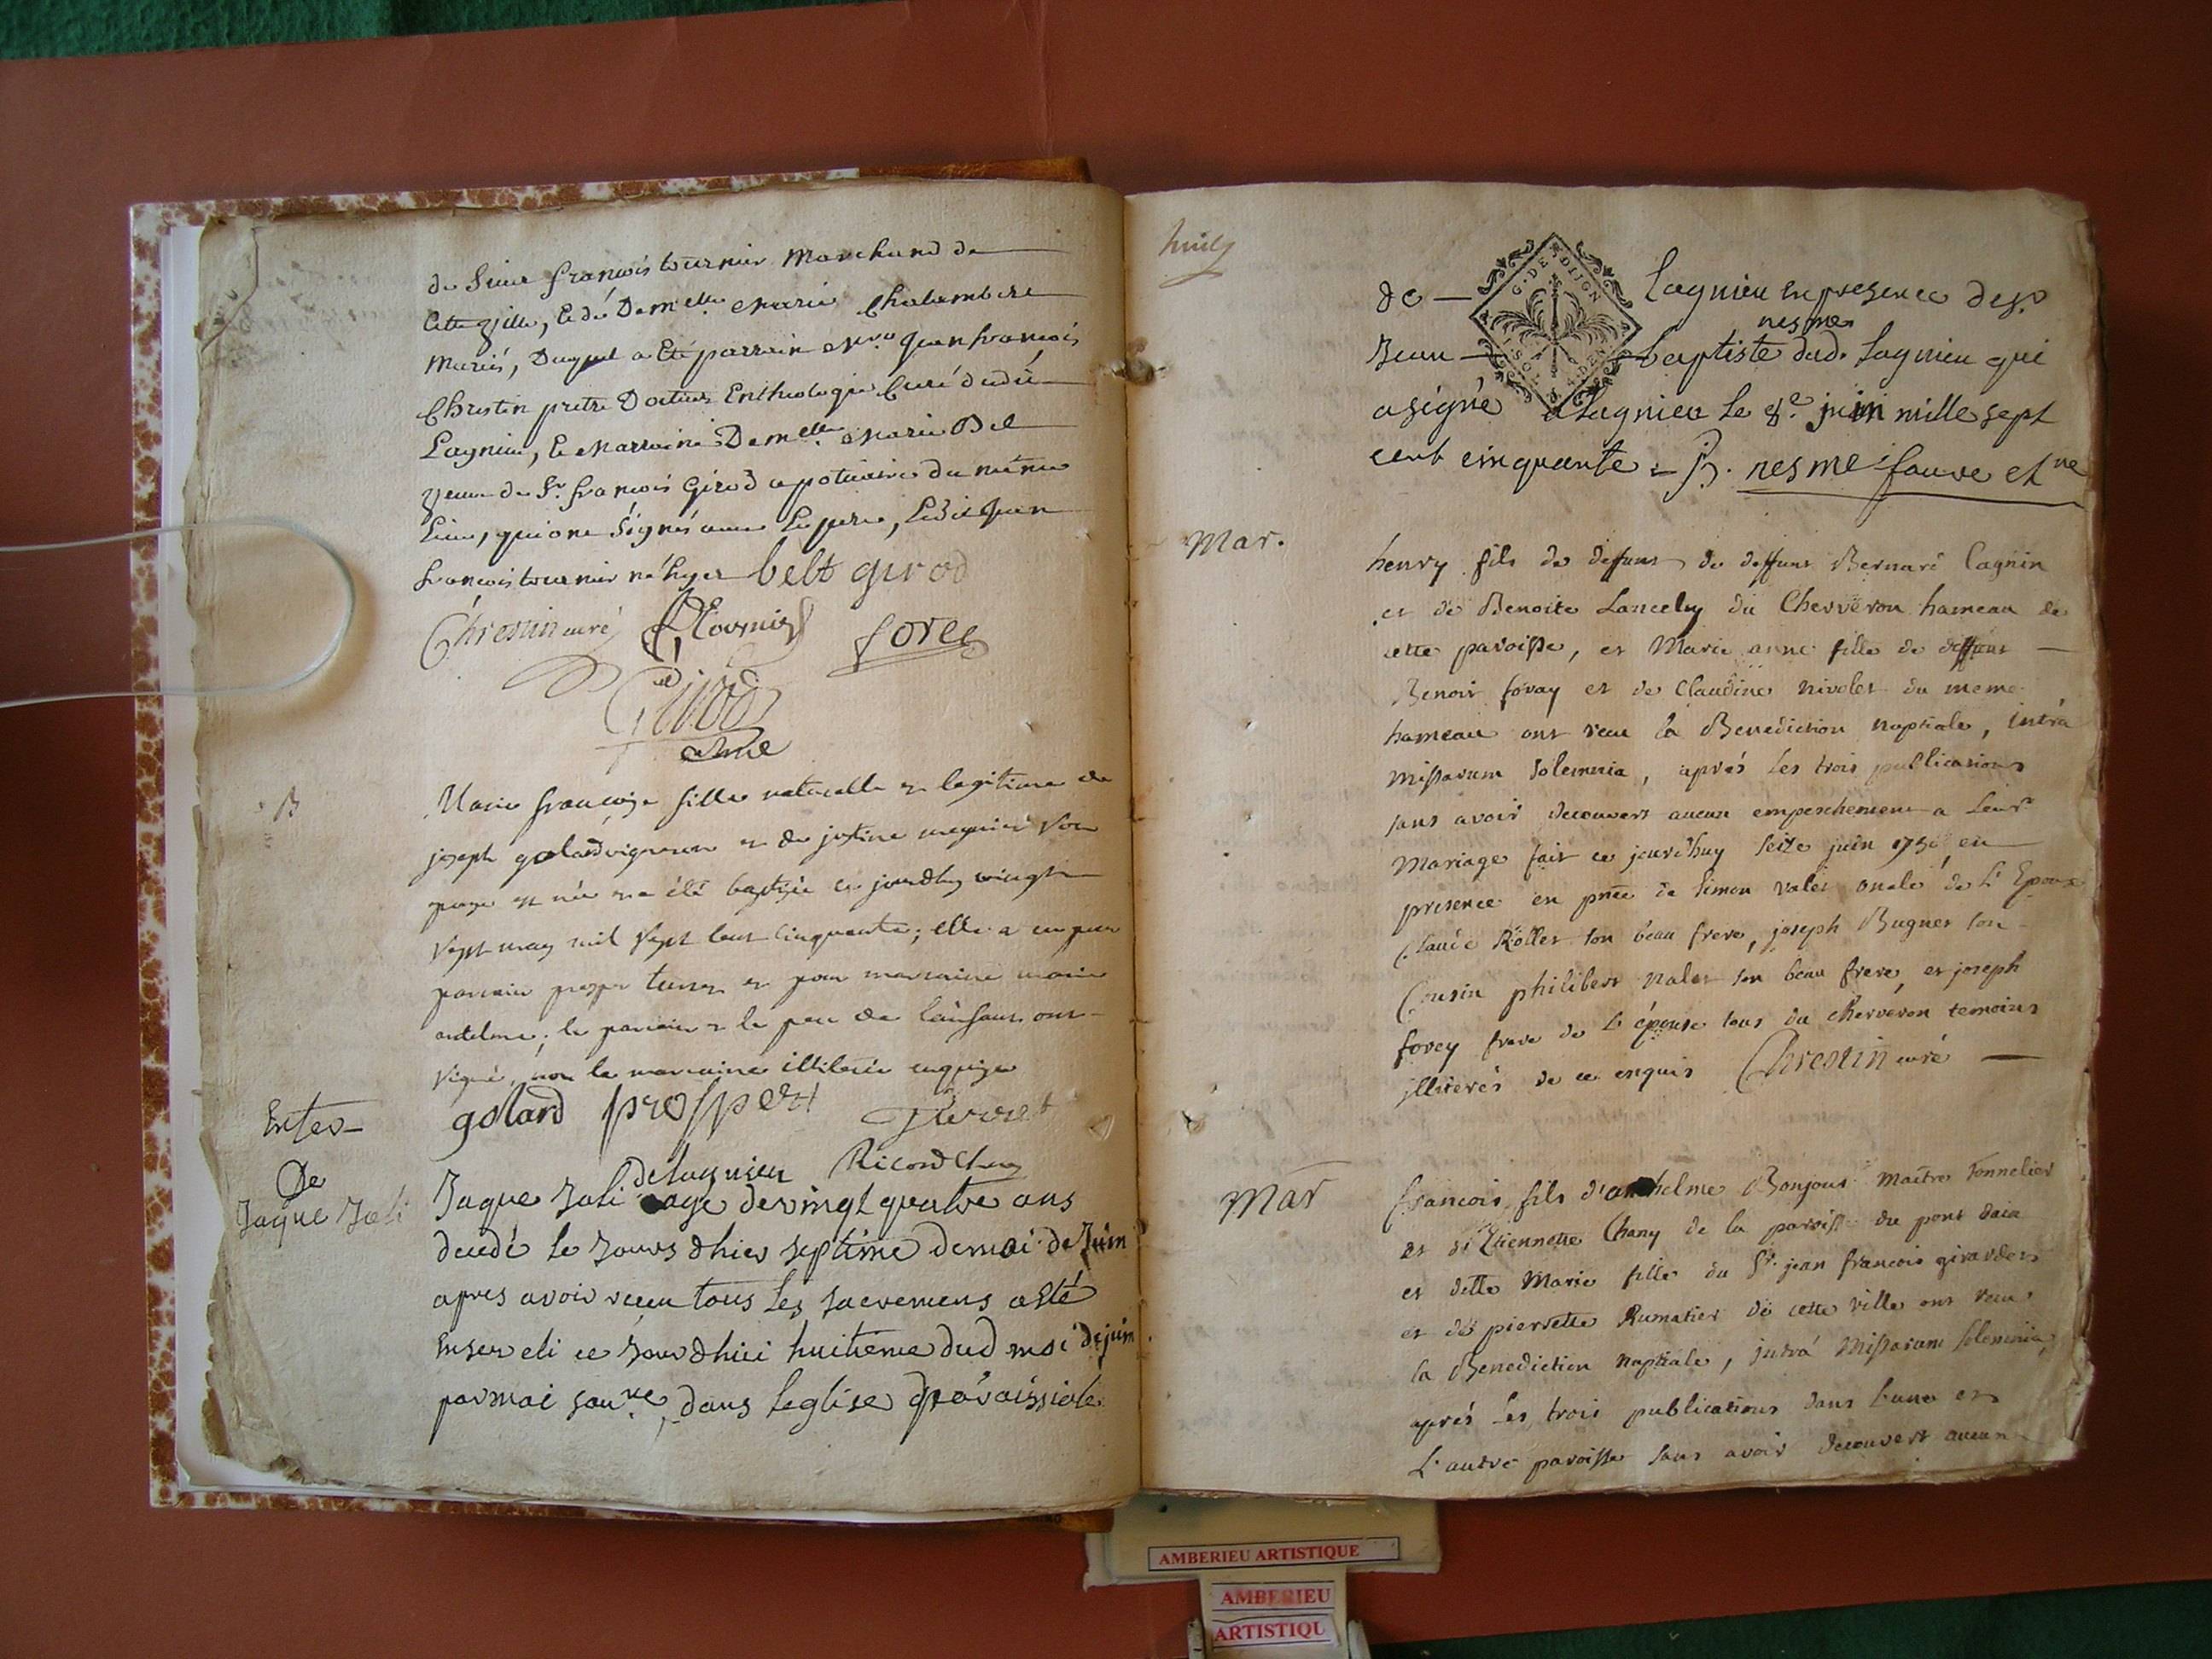 de Sieur françois tournier Marchand de
Cette ville, & de Dem.elle Marie Chalambere
Mariés, Duquel a Eté parrain françois
Chrestin pretre Docteur En theologie Curé dudit
Lagnieu, & Marraine Dem.elle Marie Bel
veuve de Sr. françois Girod apotiaire du même
Lieu, qui ont Signés avec Le pere, Ledit
françois tournier belt girod
Chrestin curé Tournier forey
Girod
B
Marie françoise fille naturelle et legitime de
joseph golard vigneron et de justine meunier son
est née et a été baptisée ce jourdhuy vingt
sept may mil sept cent cinquante; elle a eu pour
parrain prosper et pour marraine marie
antelme; le parrain et le pere de l'enfant ont
signé, non la marraine illiterée enquise
golard prosper
Enter
De
Jaque Joli
delagnieu Ricord
Jaque Joli age devingt quatre ans
decedé le Jours dhier septime demoi de Juin
apres avoir receu tous les sacremens a esté
Enseveli ce Jour dhui huitieme dud moi de juin
par moi dans leglise paroissiale
de Lagnieu en presence de sr
nesme
Jean baptiste dud. Lagnieu qui
a signé a Lagnieu le 8.e juin mille sept
cent cinquante = J. nesme fauve
Mar.
henry fils de deffunt de deffunt Bernard Cagnin
et de Benoite Lancelry du Cherveron hameau de
cette paroisse, et Marie anne fille de deffunt
Benoit foray et de Claudine Nivolet du meme
hameau ont receu la Benediction nuptiale, intra
missarum solemnia, aprés les trois publications
sans avoir decouvert aucun empeschement a leur
Mariage fait ce jourd'huy seize juin 1750 en
presence en pnce de Simon valet oncle de L'Epoux
Claude Rollet son beau frere, joseph Bugnet son
Cousin philibert valet son beau frere, et joseph
forey frere de L'épouse tous du cherveron temoins
illiterés de ce enquis Chrestin curé
Mar
francois fils d'anthelme Bonjour maître tonnelier
et d'Etiennette Chany de la paroisse du pont dain
et delle Marie fille du Sr. jean francois girardet
et de pierrette Rumatier de cette ville ont receu
la Benediction nuptiale, intrá missarum solemnia,
aprés les trois publications dans l'une et
L'autre paroisse sans avoir decouvert aucun
AMBERIEU ARTISTIQUE
AMBERIEU
ARTISTIQU